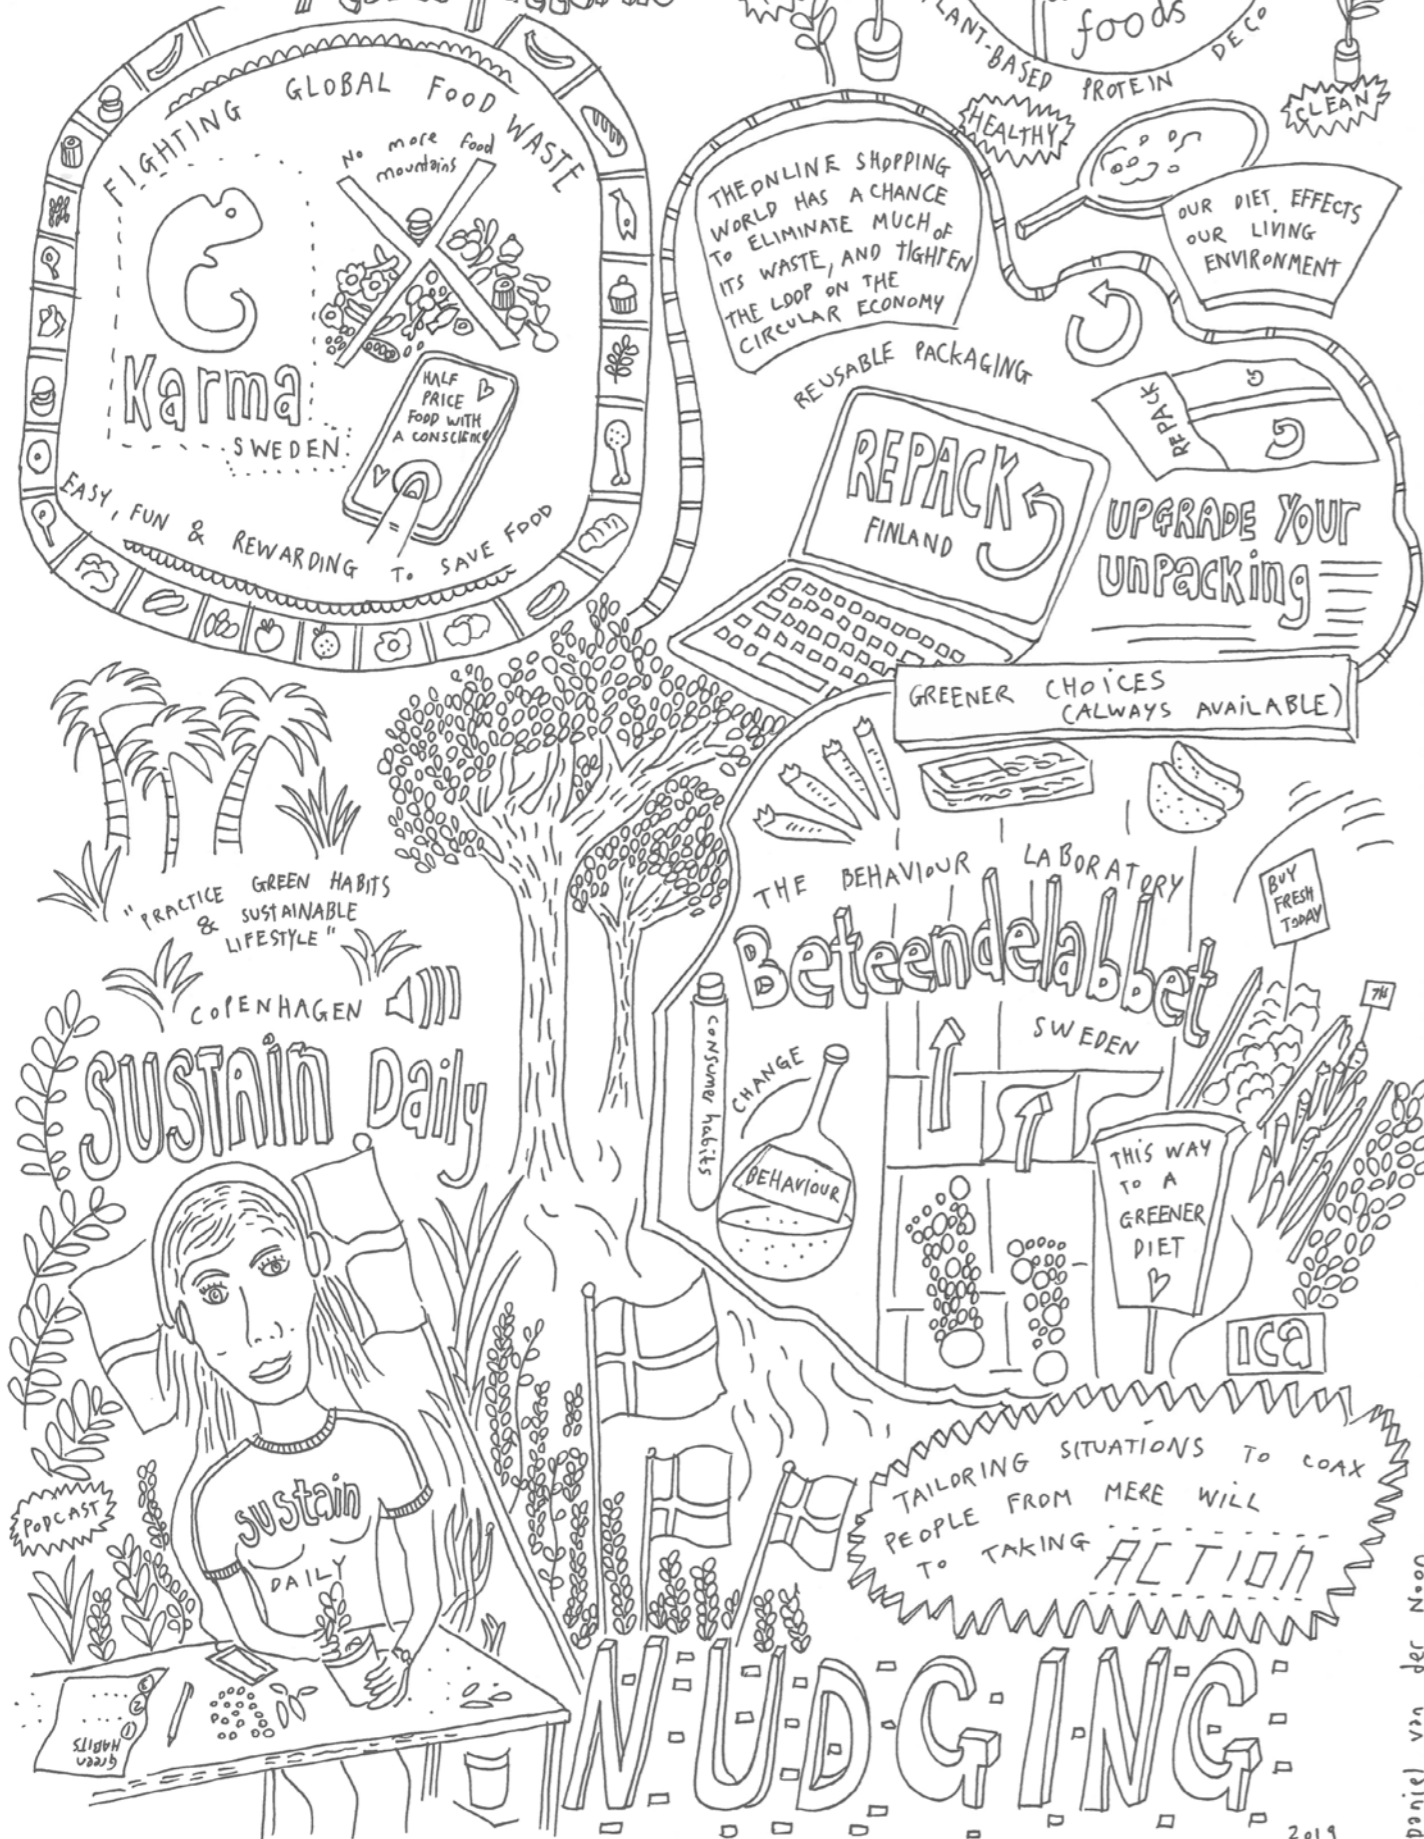 foods
PLANT-BASED PROTEIN
HEALTHY
CLEAN
FIGHTING GLOBAL FOOD WASTE
No more food
mountains
Karma
SWEDEN
HALF
PRICE
FOOD WITH
A CONSCIENCE
EASY, FUN & REWARDING TO SAVE FOOD
THE ONLINE SHOPPING
WORLD HAS A CHANCE
TO ELIMINATE MUCH OF
ITS WASTE, AND TIGHTEN
THE LOOP ON THE
CIRCULAR ECONOMY
OUR DIET EFFECTS
OUR LIVING
ENVIRONMENT
REUSABLE PACKAGING
REPACK
FINLAND
REPACK
UPGRADE YOUR
UNPACKING
GREENER CHOICES
(ALWAYS AVAILABLE)
"PRACTICE GREEN HABITS
& SUSTAINABLE
LIFESTYLE"
COPENHAGEN
SUSTAIN Daily
THE BEHAVIOUR LABORATORY
Beteendelabbet
SWEDEN
BUY
FRESH
TODAY
consume habits
CHANGE
BEHAVIOUR
THIS WAY
TO A
GREENER
DIET
ica
sustain
DAILY
PODCAST
Green
HABITS
1
2
3
TAILORING SITUATIONS TO COAX
PEOPLE FROM MERE WILL
TO TAKING ACTION
NUDGING
2019
Daniel van der Noon